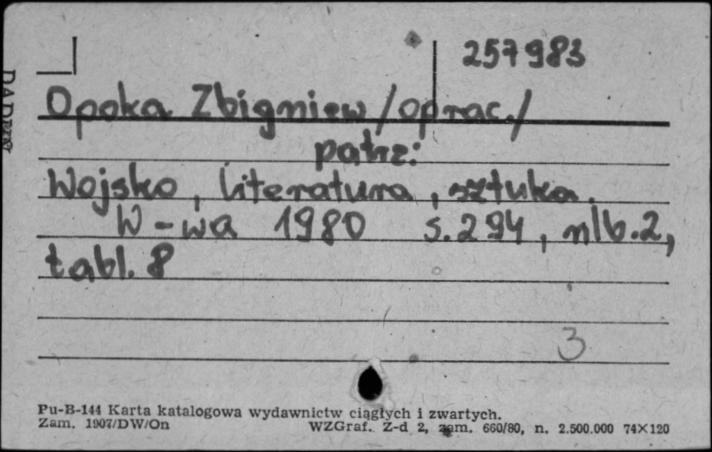 257983
Opoka Zbigniew /oprac./
patrz:
Wojsko, literatura, sztuka.
W-wa 1980 s.294, nlb.2,
tabl. 8
3
Pu-B-144 Karta katalogowa wydawnictw ciągłych i zwartych.
Zam. 1907/DW/On WZGraf. Z-d 2, zam. 660/80, n. 2.500.000 74×120